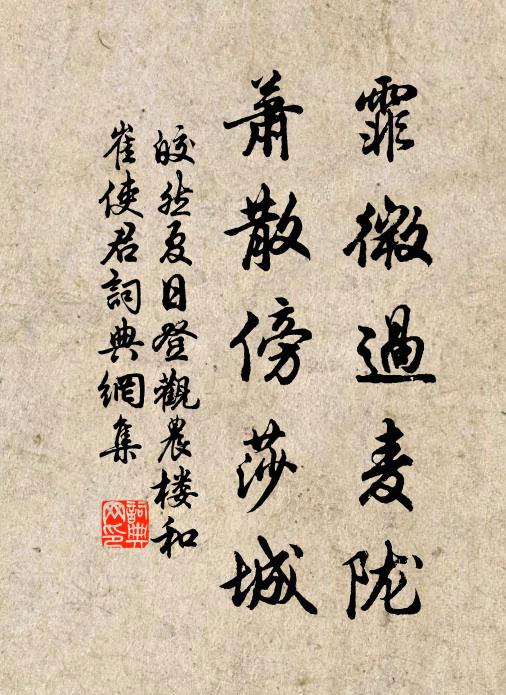 霏微過麦陇
蕭散傍莎城
皎然夏日登觀農楼和
崔使君詞典網集
詞典
网印